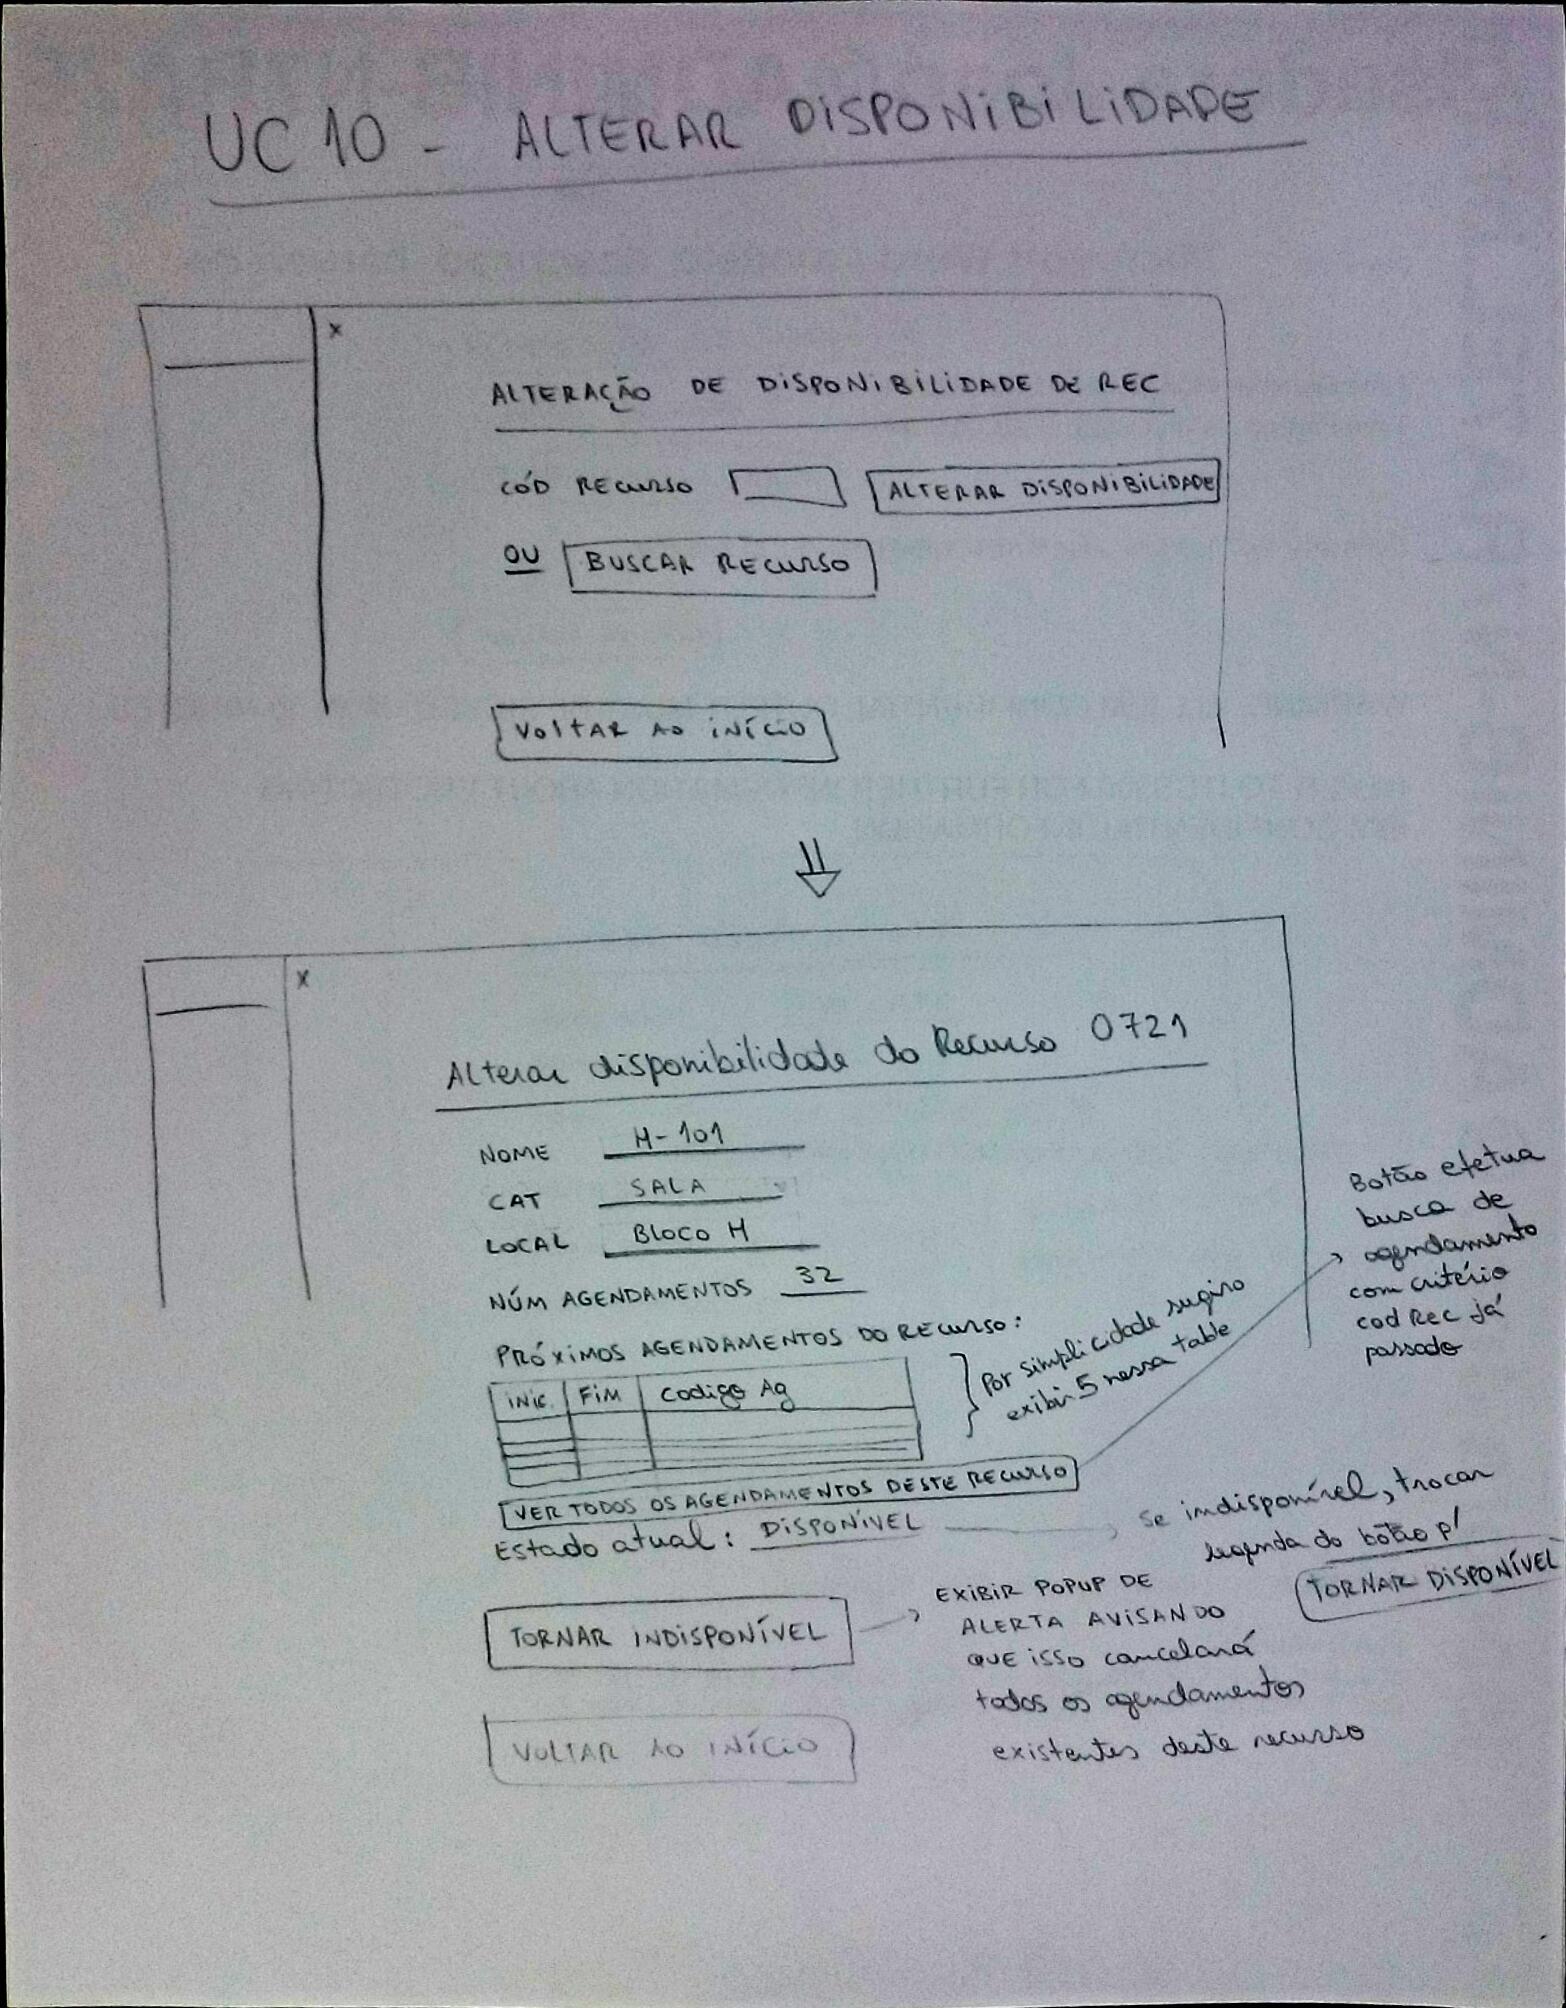 UC 10 - ALTERAR DISPONIBILIDADE
x
ALTERAÇÃO DE DISPONIBILIDADE DE REC
CÓD RECURSO ALTERAR DISPONIBILIDADE
OU BUSCAR RECURSO
VOLTAR AO INÍCIO
x
Alterar disponibilidade do Recurso 0721
NOME H-101
CAT SALA
LOCAL BLOCO H
NÚM AGENDAMENTOS 32
PRÓXIMOS AGENDAMENTOS DO RECURSO:
INIC. FIM Codigo Ag
Por simplicidade sugiro
exibir 5 nessa table
VER TODOS OS AGENDAMENTOS DESTE RECURSO
Botão efetua
busca de
agendamento
com critério
cod Rec já
passado
Estado atual: DISPONÍVEL
se indisponível, trocar
legenda do botão p/
TORNAR DISPONÍVEL
TORNAR INDISPONÍVEL
EXIBIR POPUP DE
ALERTA AVISANDO
QUE ISSO cancelará
todos os agendamentos
existentes deste recurso
VOLTAR AO INÍCIO